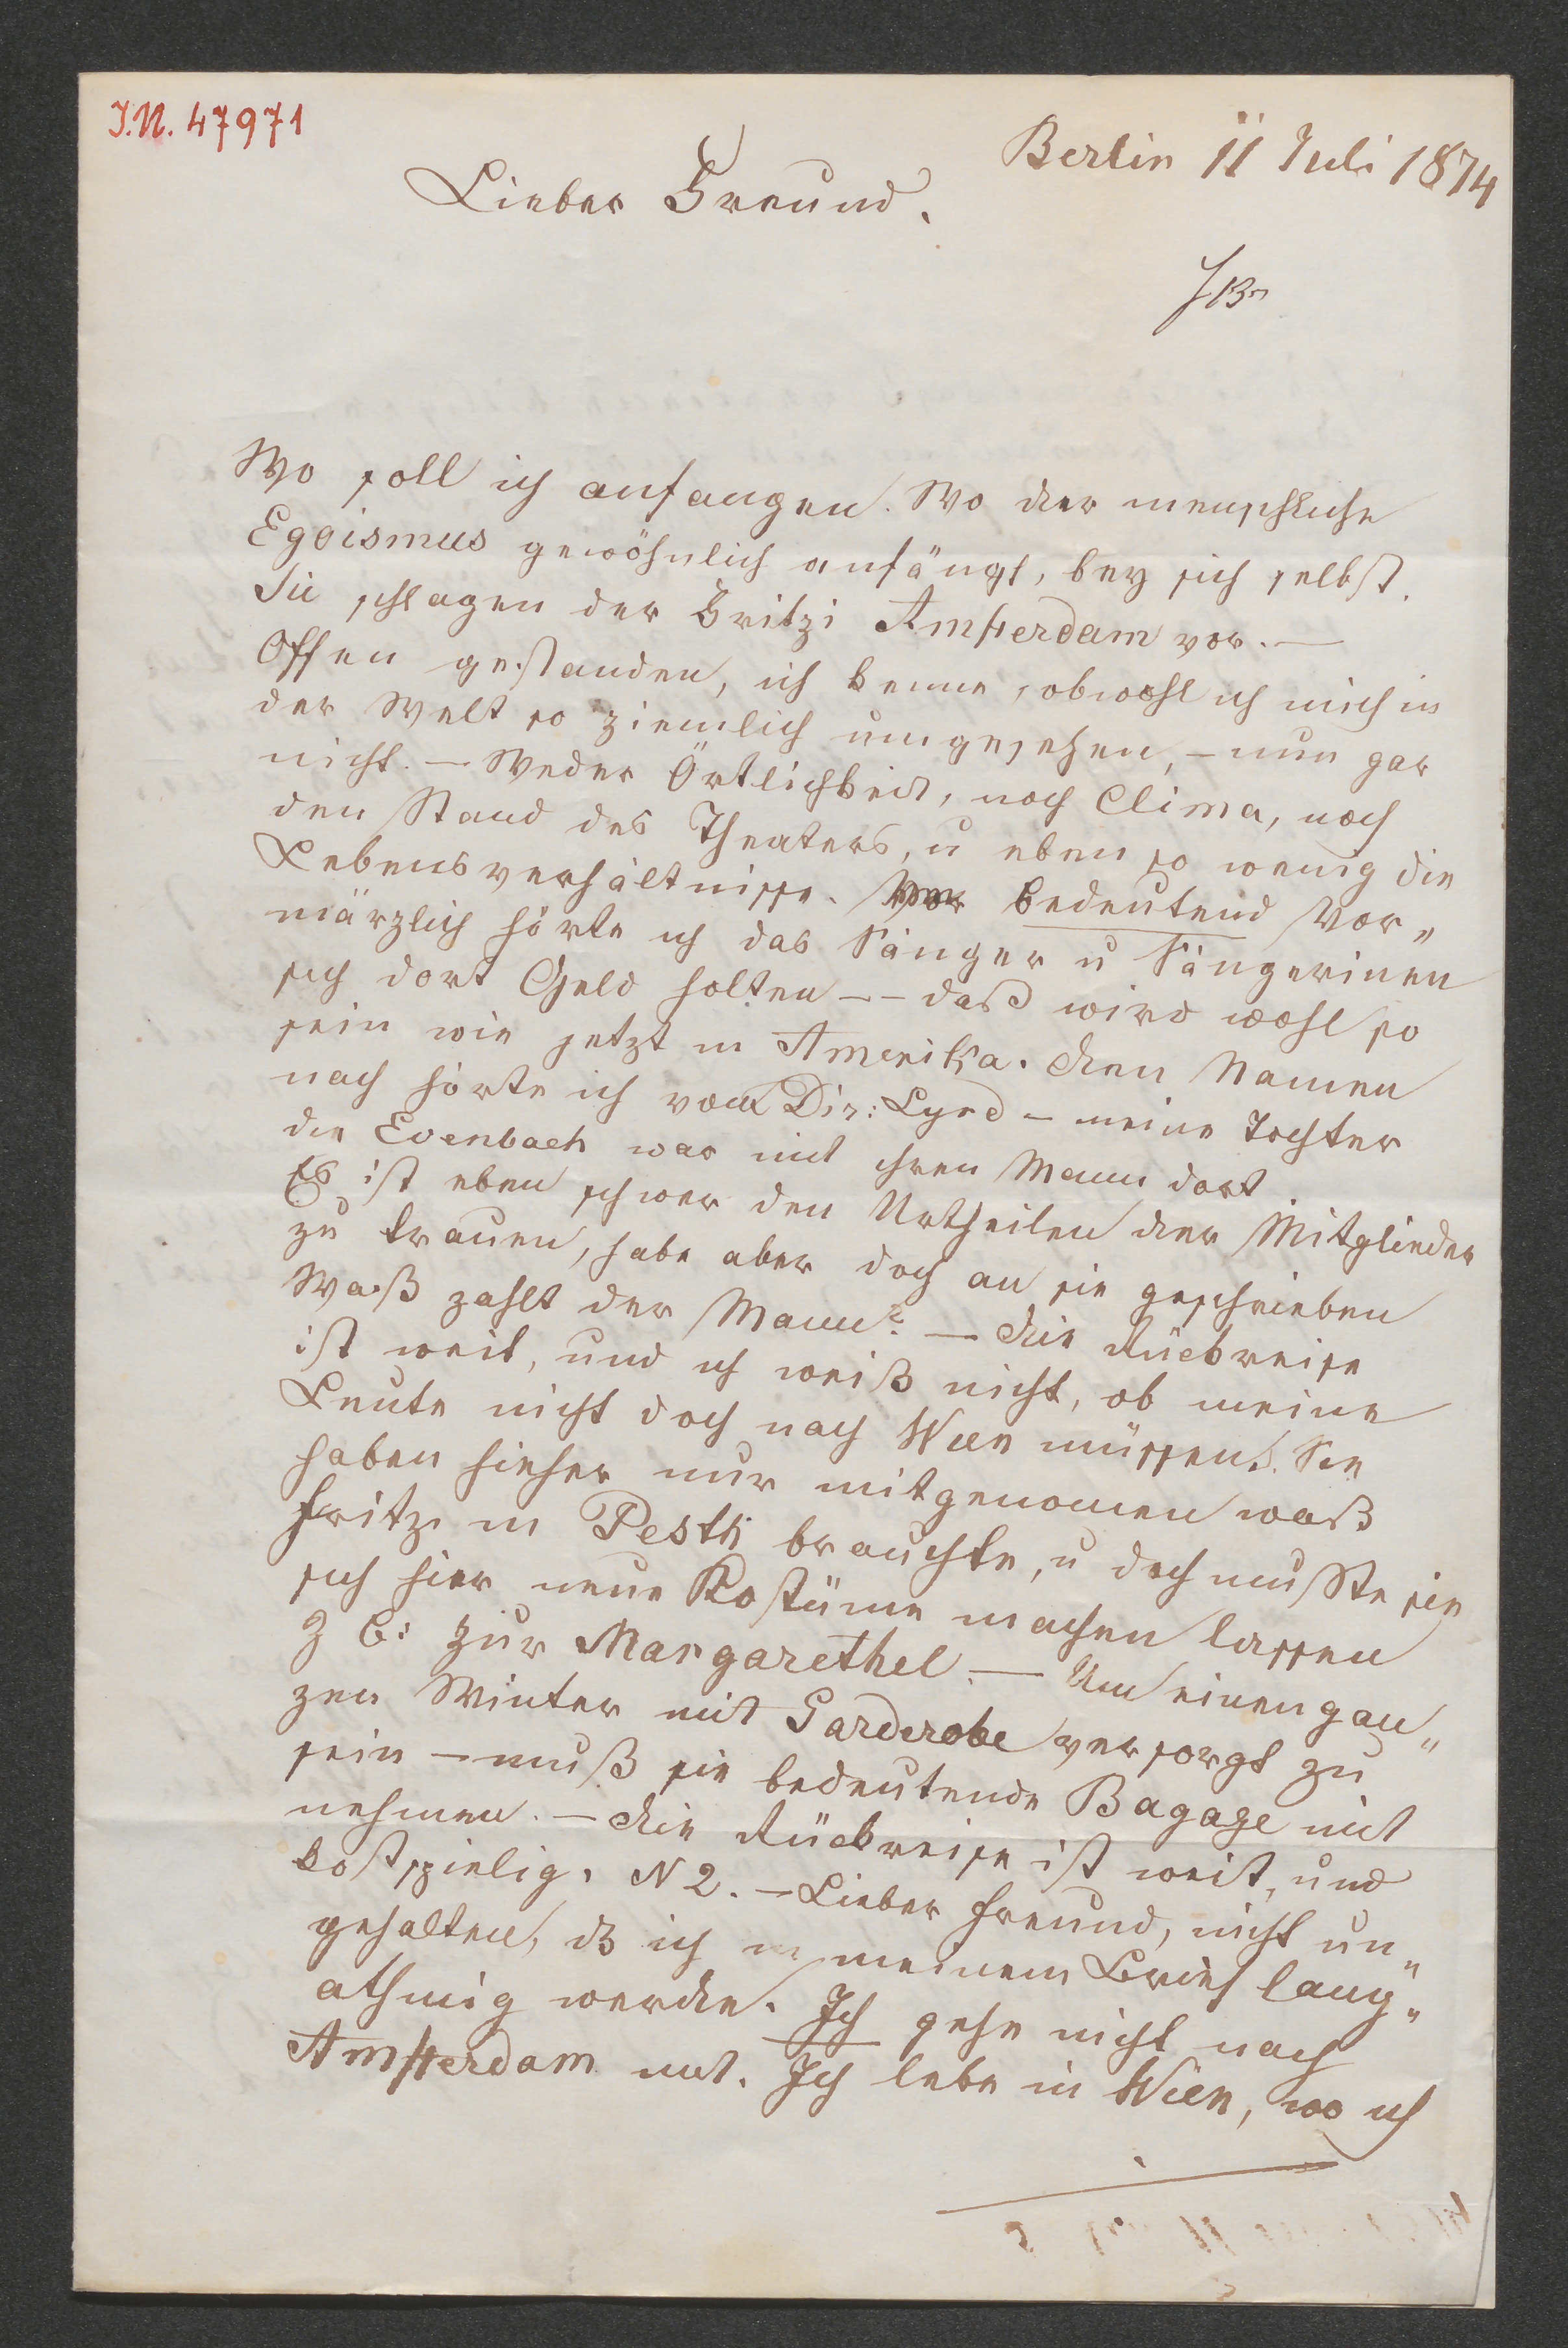 J.N. 47971
Berlin 11 Juli 1874
Lieber Freund.
Wo soll ich anfangen. Wo der menschliche
Egoismus gewöhnlich anfängt, bey sich selbst.
Sie schlagen der Fritzi Amsterdam vor. —
Offen gestanden, ich kenne, obwohl ich mich in
der Welt so ziemlich umgesehen, — nun gar
nicht. — Weder Örtlichkeit, noch Clima, noch
den Stand des Theaters, u eben so wenig die
Lebensverhältnisse. bedeutend Vor„
märzlich hörte ich das Sänger u Sängerinen
sich dort Geld holten — — daß wird wohl so
sein wie jetzt in Amerika. Den Namen
nach hörte ich vom Dir: — meine Tochter
die war mit ihren Mann dort.
Es ist eben schwer den Urtheilen der Mitglieder
zu trauen, habe aber doch an sie geschrieben
Waß zahlt der Mann? — Die Rückreise
ist weit, und ich weiß nicht, ob meine
Leute nicht doch nach Wien müssen. Sie
haben hieher nur mitgenomen waß
Fritzi in Pesth brauchte, u doch mußte sie
sich hier neue Kostüme machen lassen
z B: zur Margarethel. — Um einen gan„
zen Winter mit Garderobe versorgt zu
sein — muß sie bedeutende Bagage mit
nehmen. — Die Rückreise ist weit, und
kostspielig. N 2. — Lieber Freund, nicht un„
gehalten, dß ich in meinem Brief lang„
athmig werde. Ich gehe nicht nach
Amsterdam mit. Ich lebe in Wien, wo ich